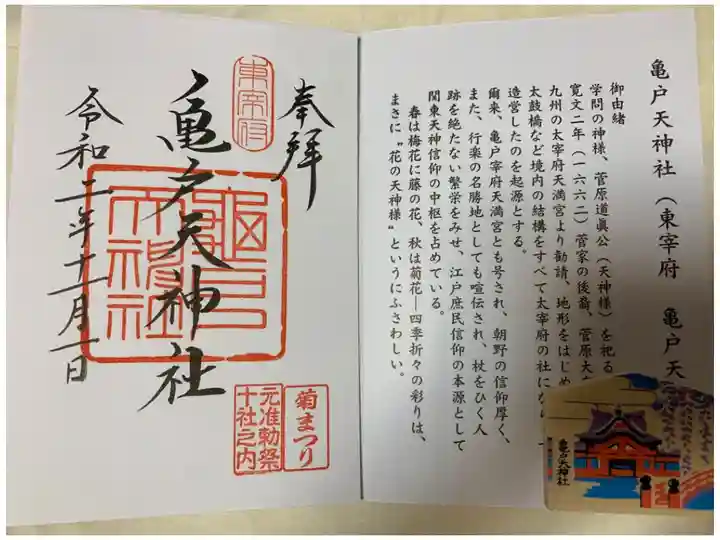 亀戸天神社（東宰府　亀戸天
御由緒
学問の神様、菅原道眞公（天神様）を祀る
寛文二年（一六六二）菅家の後裔、菅原大
九州の太宰府天満宮より勧請、地形をはじめ
太鼓橋など境内の結構をすべて太宰府の社にな
造営したのを起源とする。
爾来、亀戸宰府天満宮とも号され、朝野の信仰厚く、
また、行楽の名勝地としても喧伝され、杖をひく人
跡を絶たない繁栄をみせ、江戸庶民信仰の本源として
関東天神信仰の中枢を占めている。
春は梅花に藤の花、秋は菊花―四季折々の彩りは、
まさに〝花の天神様〟というにふさわしい。
亀戸天神社
奉拝
東宰府
亀戸天神社
龜戸
天神社
令和二年十一月一日
菊まつり
元准勅祭
十社之内